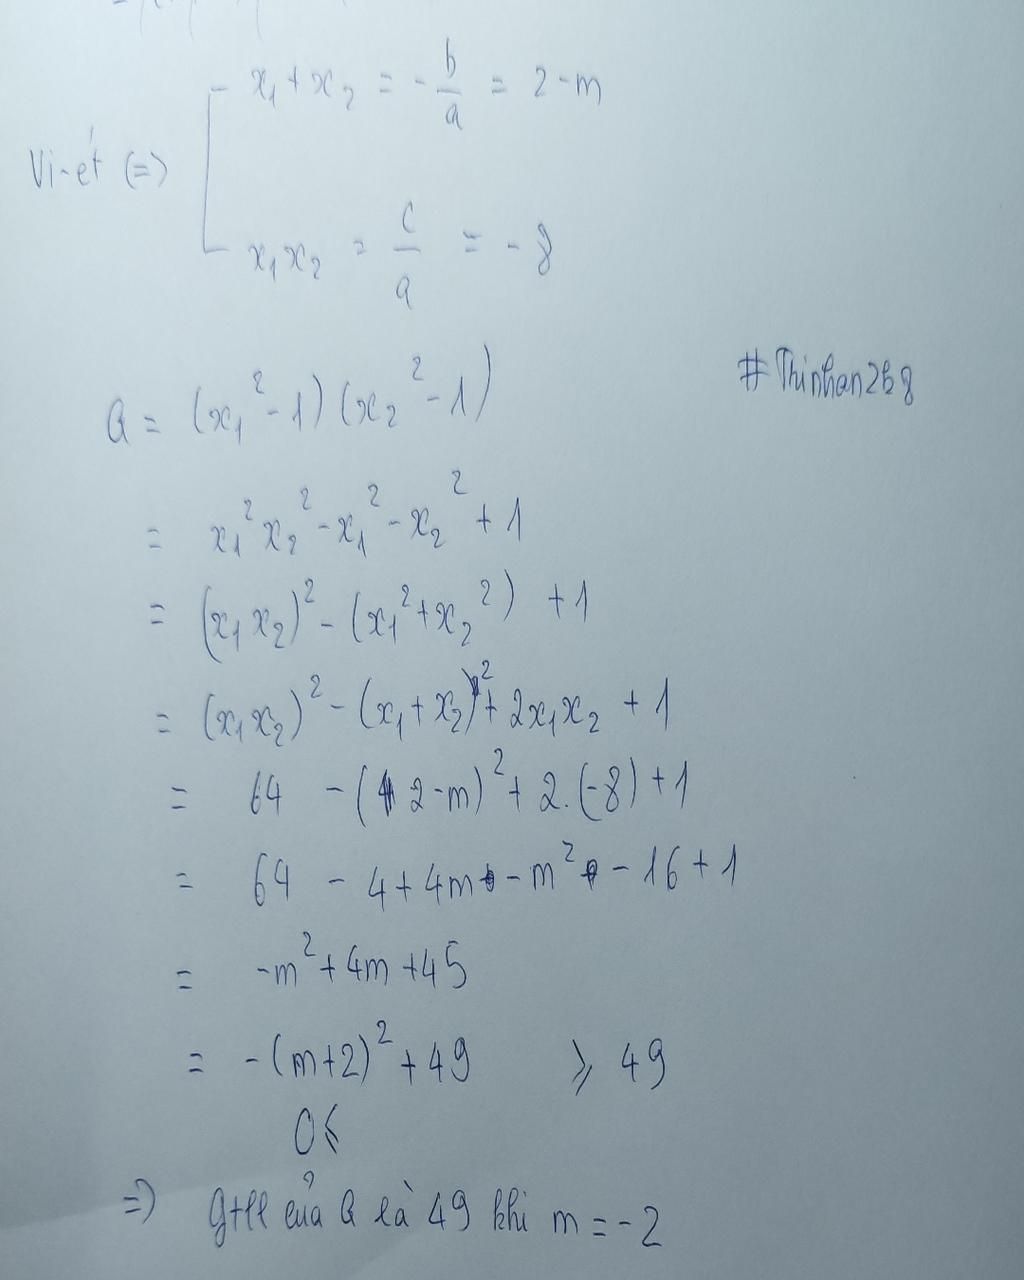 x₁ + x₂ = -b/a = 2-m
Vi-ét (=)
x₁x₂ = c/a = -8
#Thinhan2k8
Q = (x₁² - 1)(x₂² - 1)
= x₁²x₂² - x₁² - x₂² + 1
= (x₁x₂)² - (x₁² + x₂²) + 1
= (x₁x₂)² - (x₁ + x₂)² + 2x₁x₂ + 1
= 64 - (2-m)² + 2.(-8) + 1
= 64 - 4 + 4m - m² - 16 + 1
= -m² + 4m + 45
= -(m+2)² + 49 ⩾ 49
0⩽
=) của Q là 49 khi m = -2